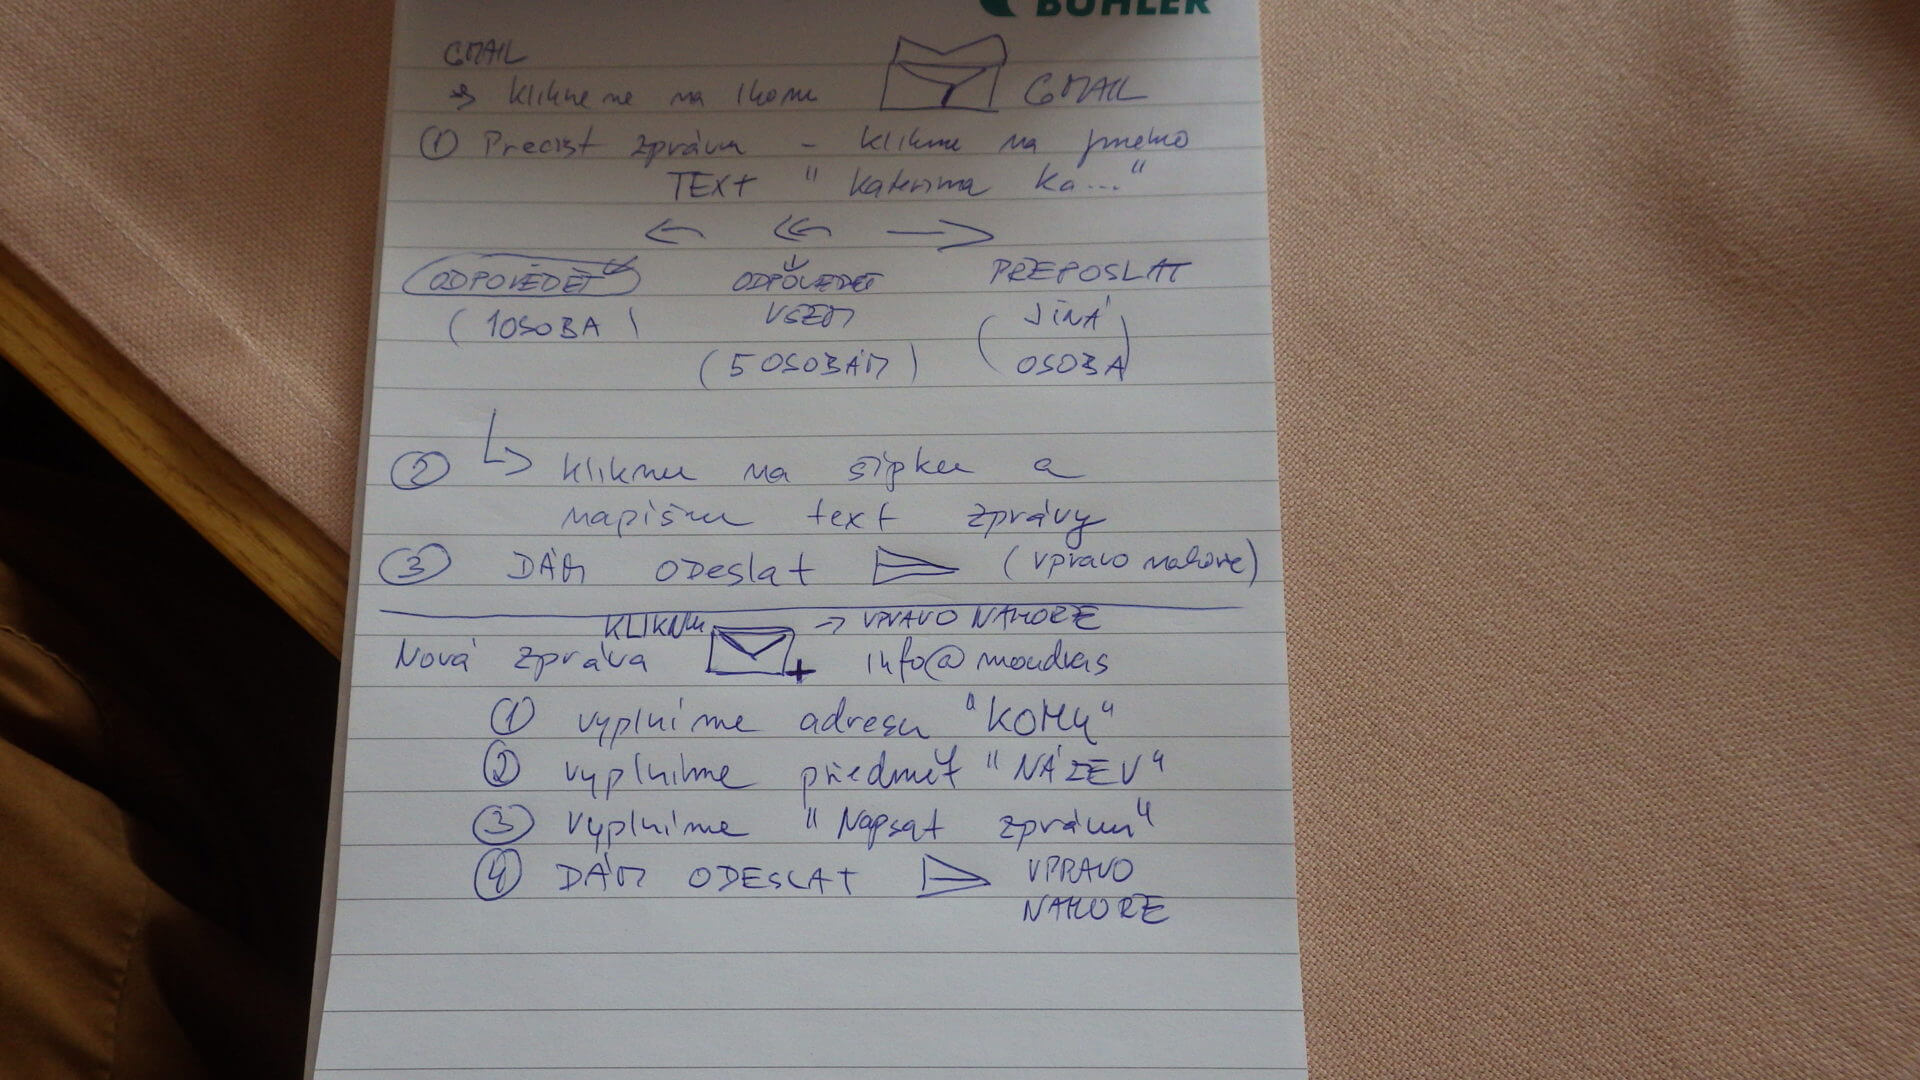 BÜHLER
GMAIL
→ klikneme na Ikonu GMAIL
① Precist zprávu - kliknu na jmeno
TEXT " Katerina Ka..."
ODPOVĚDĚT ODPOVEDET PREPOSLAT
(1OSOBA) VSEM (JINÁ
(5 OSOBÁM) OSOBA)
② kliknu na šipku a
napíšu text zprávy
③ DÁM ODeslat (vpravo nahoře)
KLIKNU → VPRAVO NAHOŘE
Nová zpráva info@moudkas
① vyplníme adresu "KOMU"
② vyplnime předmět "NÁZEV"
③ vyplníme "Napsat zprávu"
④ DÁM ODESLAT VPRAVO
NAHORE